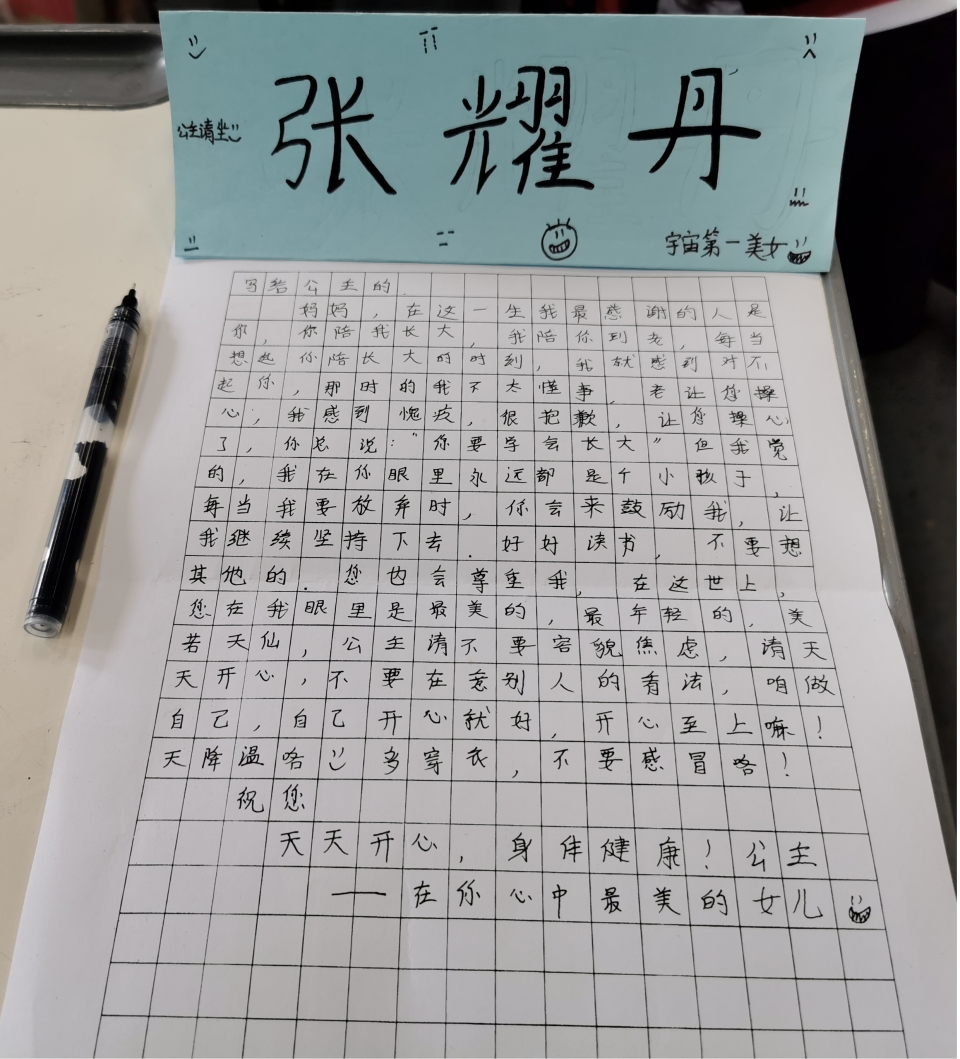 张耀丹
公主请坐
宇宙第一美女
写给公主的
妈妈，在这一生我最感谢的人是
你，你陪我长大，我陪你到老，每当
想起你陪长大的时刻，我就感到对不
起你，那时的我不太懂事，老让您操
心，我感到愧疚，很抱歉，让您操心
了，你总说：“你要学会长大”但我觉
的，我在你眼里永远都是个小孩子，
每当我要放弃时，你会来鼓励我，让
我继续坚持下去．好好读书，不要想
其他的．您也会尊重我，在这世上，
您在我眼里是最美的，最年轻的，美
若天仙，公主请不要容貌焦虑，请天
天开心，不要在意别人的看法，咱做
自己，自己开心就好，开心至上嘛！
天降温咯 多穿衣，不要感冒咯！
祝您
天天开心，身体健康！公主
——在你心中最美的女儿